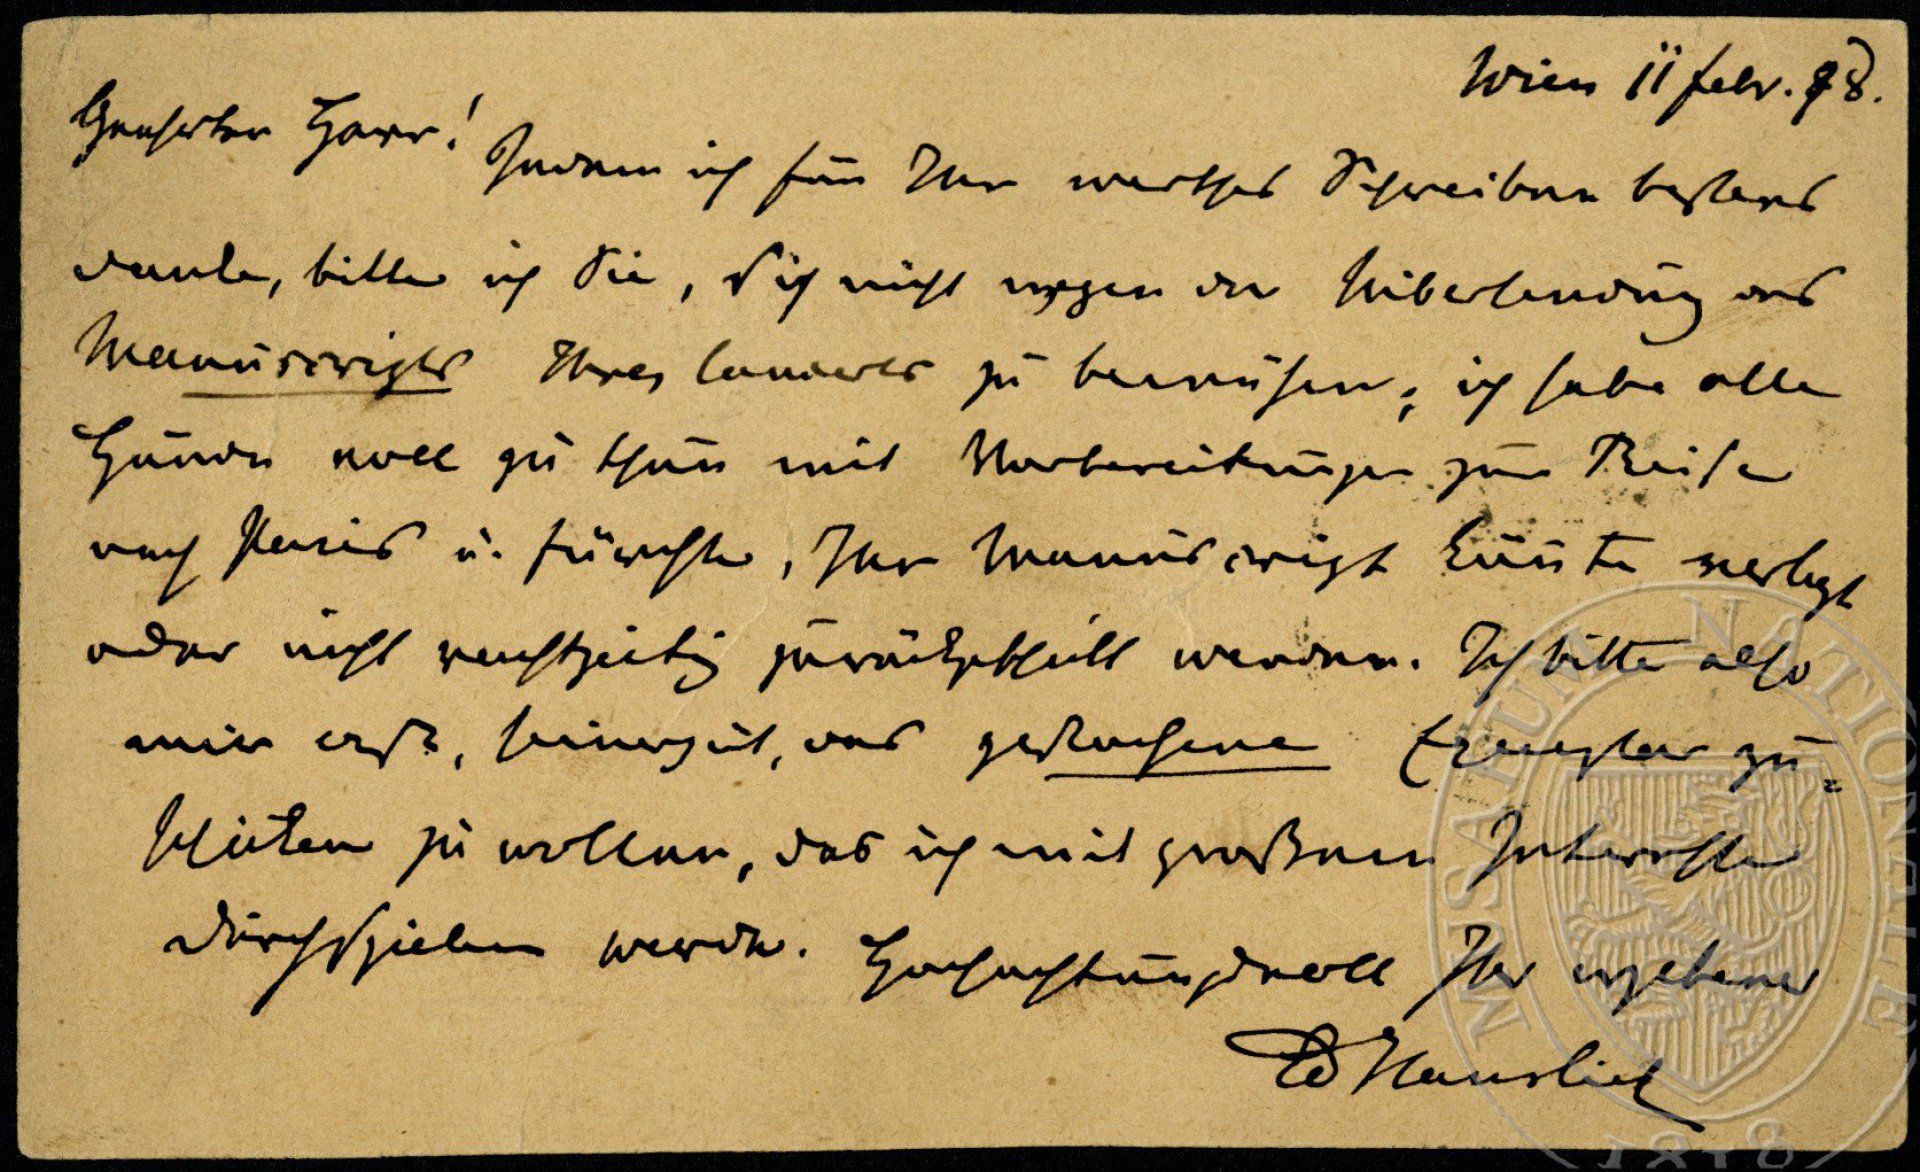 Wien 11 Febr. 78.
Geehrter Herr!
Indem ich für Ihr werthes Schreiben bestens
danke, bitte ich Sie, Sich nicht wegen der Uibersendung des
Manuscripts Ihres zu bemühen; ich habe alle
Hände voll zu thun mit Vorbereitungen zur Reise
nach Paris u. fürchte, Ihr Manuscript könnte verlegt
oder nicht rechtzeitig zurückgestellt werden. Ich bitte also
mir erst, seinerzeit, das gestochene Exemplar zu=
schicken zu wollen, das ich mit großem Interesse
durchspielen werde. Hochachtungsvoll Ihr ergebener
Ed Hanslick
MUSAEUM NATIONALE
1818